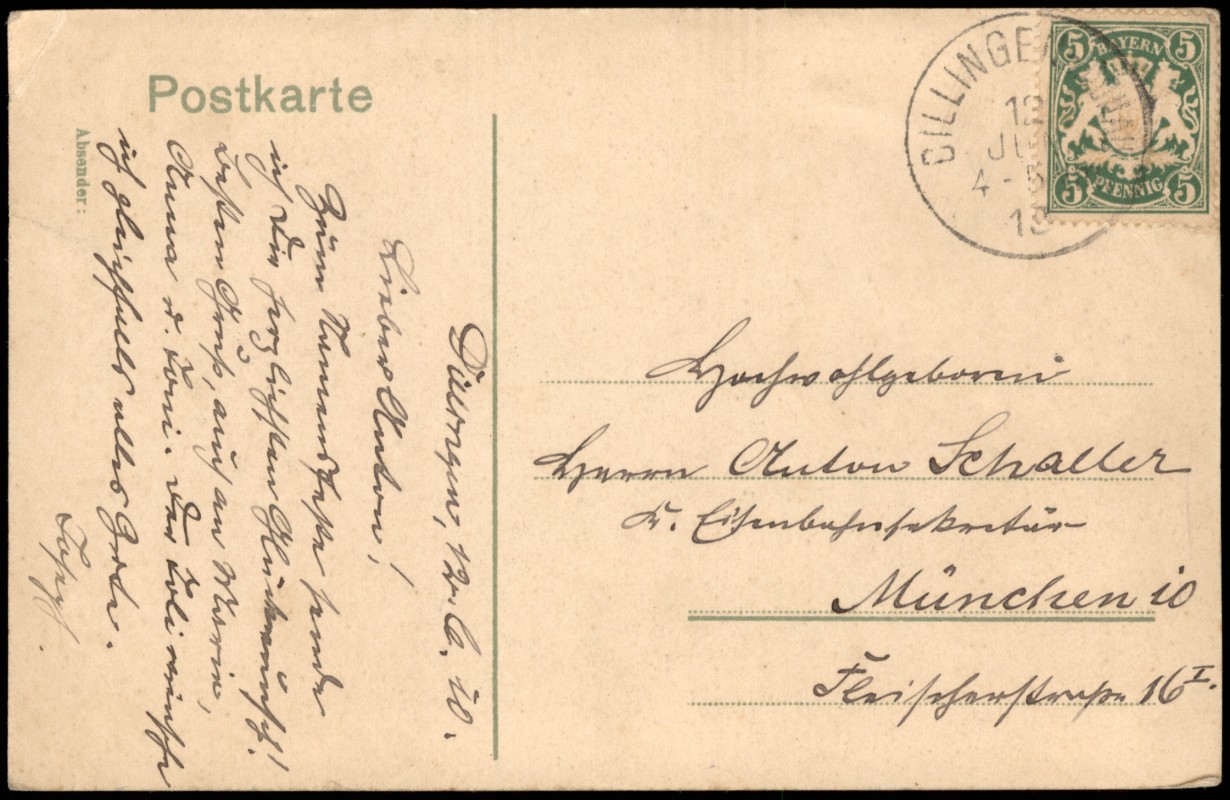 Postkarte
Absender:
Dillingen, 12.6.10.
Lieber Anton!
Zum Namensfeste sende
ich Dir herzlichsten Glückwunsch!
Besten Gruß, auch an Marie,
Anna u. Toni. Der Toli wünsche
ich gleichfalls alles Gute.
Joseph.
DILLINGEN
12
JU
4-5
BAYERN
5 5
5 PFENNIG 5
Hochwohlgeboren
Herrn Anton Schaller
K. Eisenbahnsekretär
München 10
Fleischerstraße 16 I.